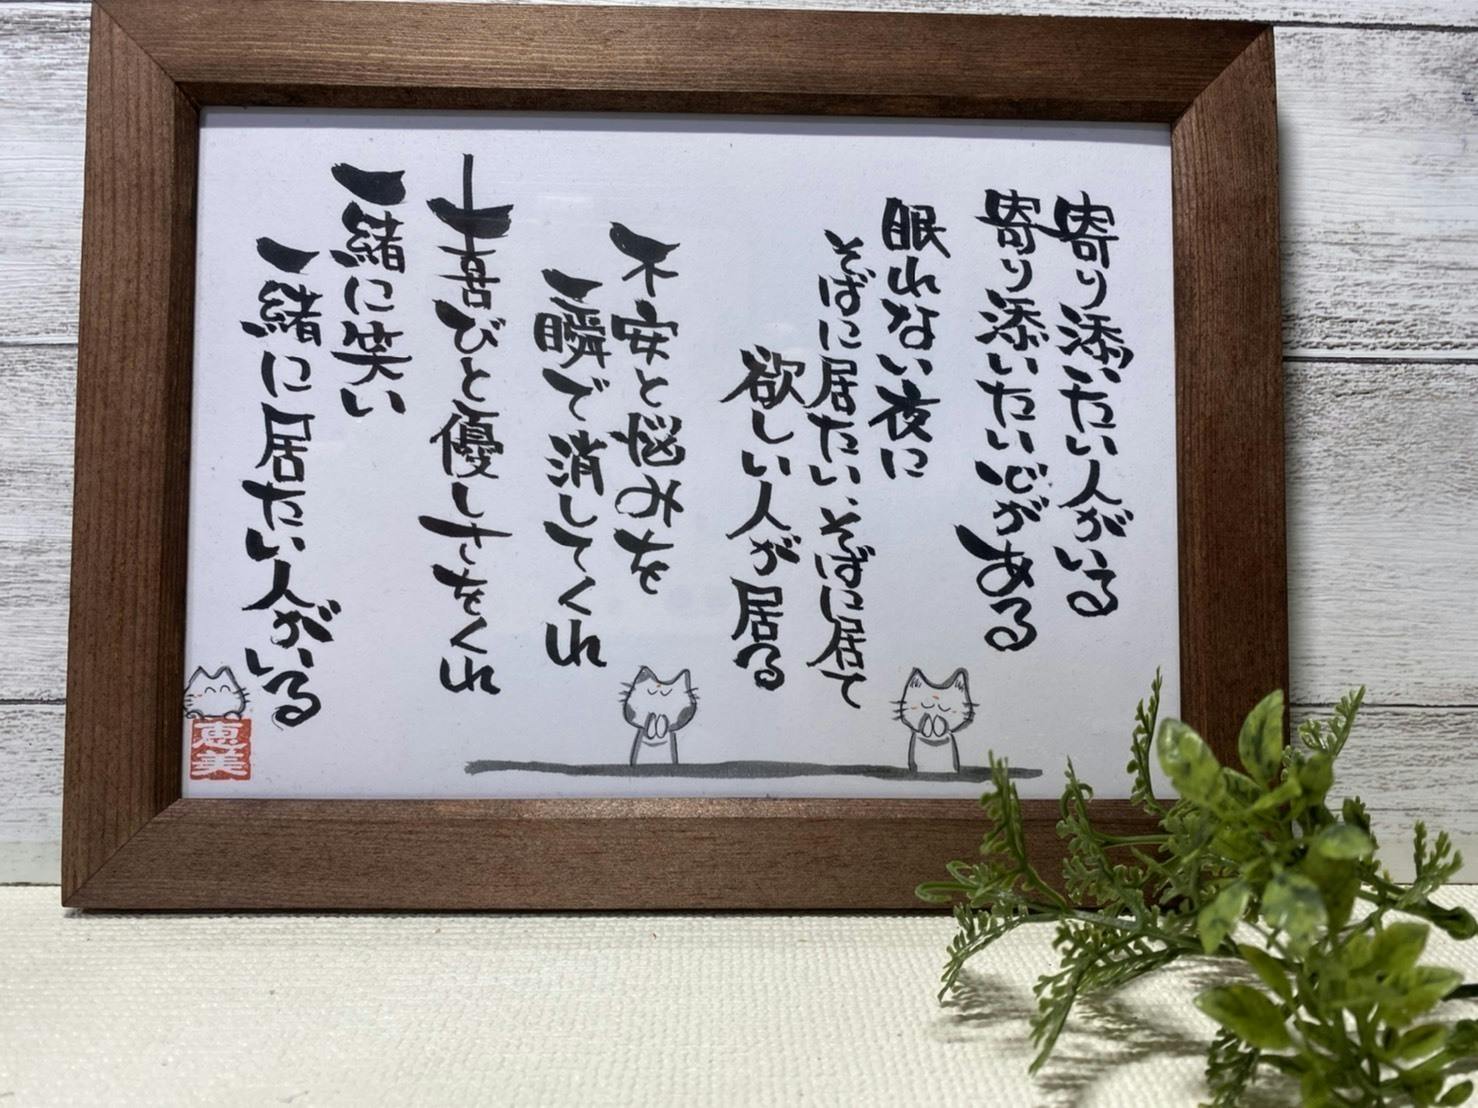 寄り添いたい人がいる
寄り添いたい心がある
眠れない夜に
そばに居たい、そばに居て
欲しい人が居る
不安と悩みを
一瞬で消してくれ
喜びと優しさをくれ
一緒に笑い
一緒に居たい人がいる
恵美